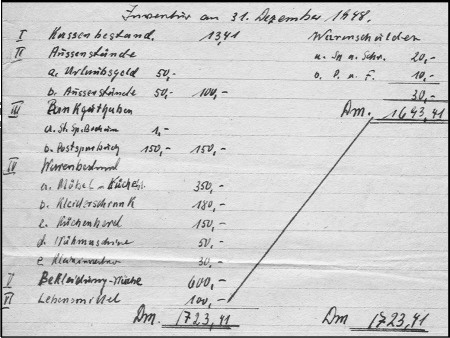 Inventur am 31. Dezember 1948.
I Kassenbestand. 13,41 Warenschulden
II Aussenstände a. Sp. u. Schr. 20,-
a. Urlaubsgeld 50,- b. P. u. F. 10,-
b. Aussenstände 50,- 100,- 30,-
III Bankguthaben Dm. 1693,41
a. St. Sp. Bochum 1,-
b. Postsparbuch 150,- 150,-
IV Warenbestand
a. Möbel - Küchen 350,-
b. Kleiderschrank 180,-
c. Küchenherd 150,-
d. Nähmaschine 50,-
e 30,-
V Bekleidung - 600,-
VI Lebensmittel 100,-
Dm. 1723,41 Dm 1723,41